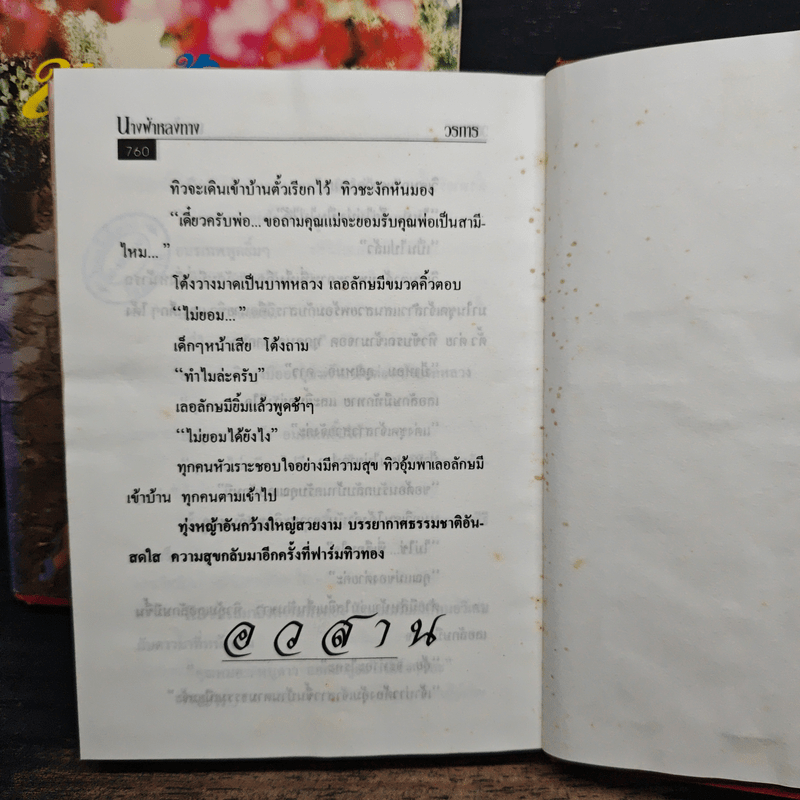 นางฟ้าหลงทาง วรการ
760
ทิวจะเดินเข้าบ้านตั้วเรียกไว้ ทิวชะงักหันมอง
“เดี๋ยวครับพ่อ... ขอถามคุณแม่จะยอมรับคุณพ่อเป็นสามี-
ไหม... ”
โต้งวางมาดเป็นบาทหลวง เลอลักษมีขมวดคิ้วตอบ
“ไม่ยอม...”
เด็กๆหน้าเสีย โต้งถาม
“ทำไมล่ะครับ”
เลอลักษมียิ้มแล้วพูดช้าๆ
“ไม่ยอมได้ยังไง”
ทุกคนหัวเราะชอบใจอย่างมีความสุข ทิวอุ้มพาเลอลักษมี
เข้าบ้าน ทุกคนตามเข้าไป
ทุ่งหญ้าอันกว้างใหญ่สวยงาม บรรยากาศธรรมชาติอัน-
สดใส ความสุขกลับมาอีกครั้งที่ฟาร์มทิวทอง
อวสาน